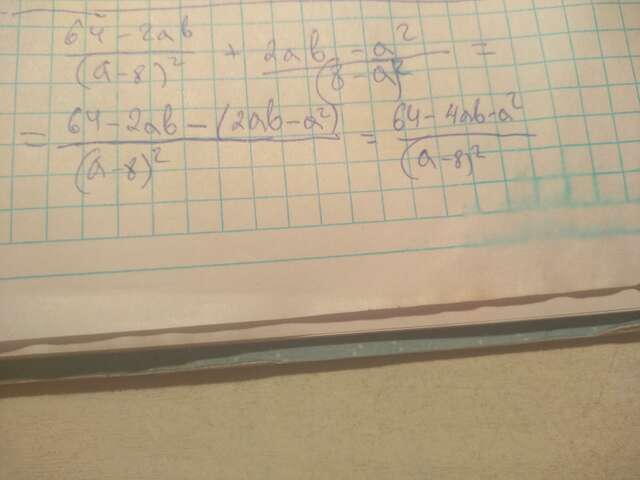 (64 - 2ab)/(a-8)² + (2ab - a²)/(8-a)² =
= (64 - 2ab - (2ab - a²))/(a-8)² = (64 - 4ab - a²)/(a-8)²